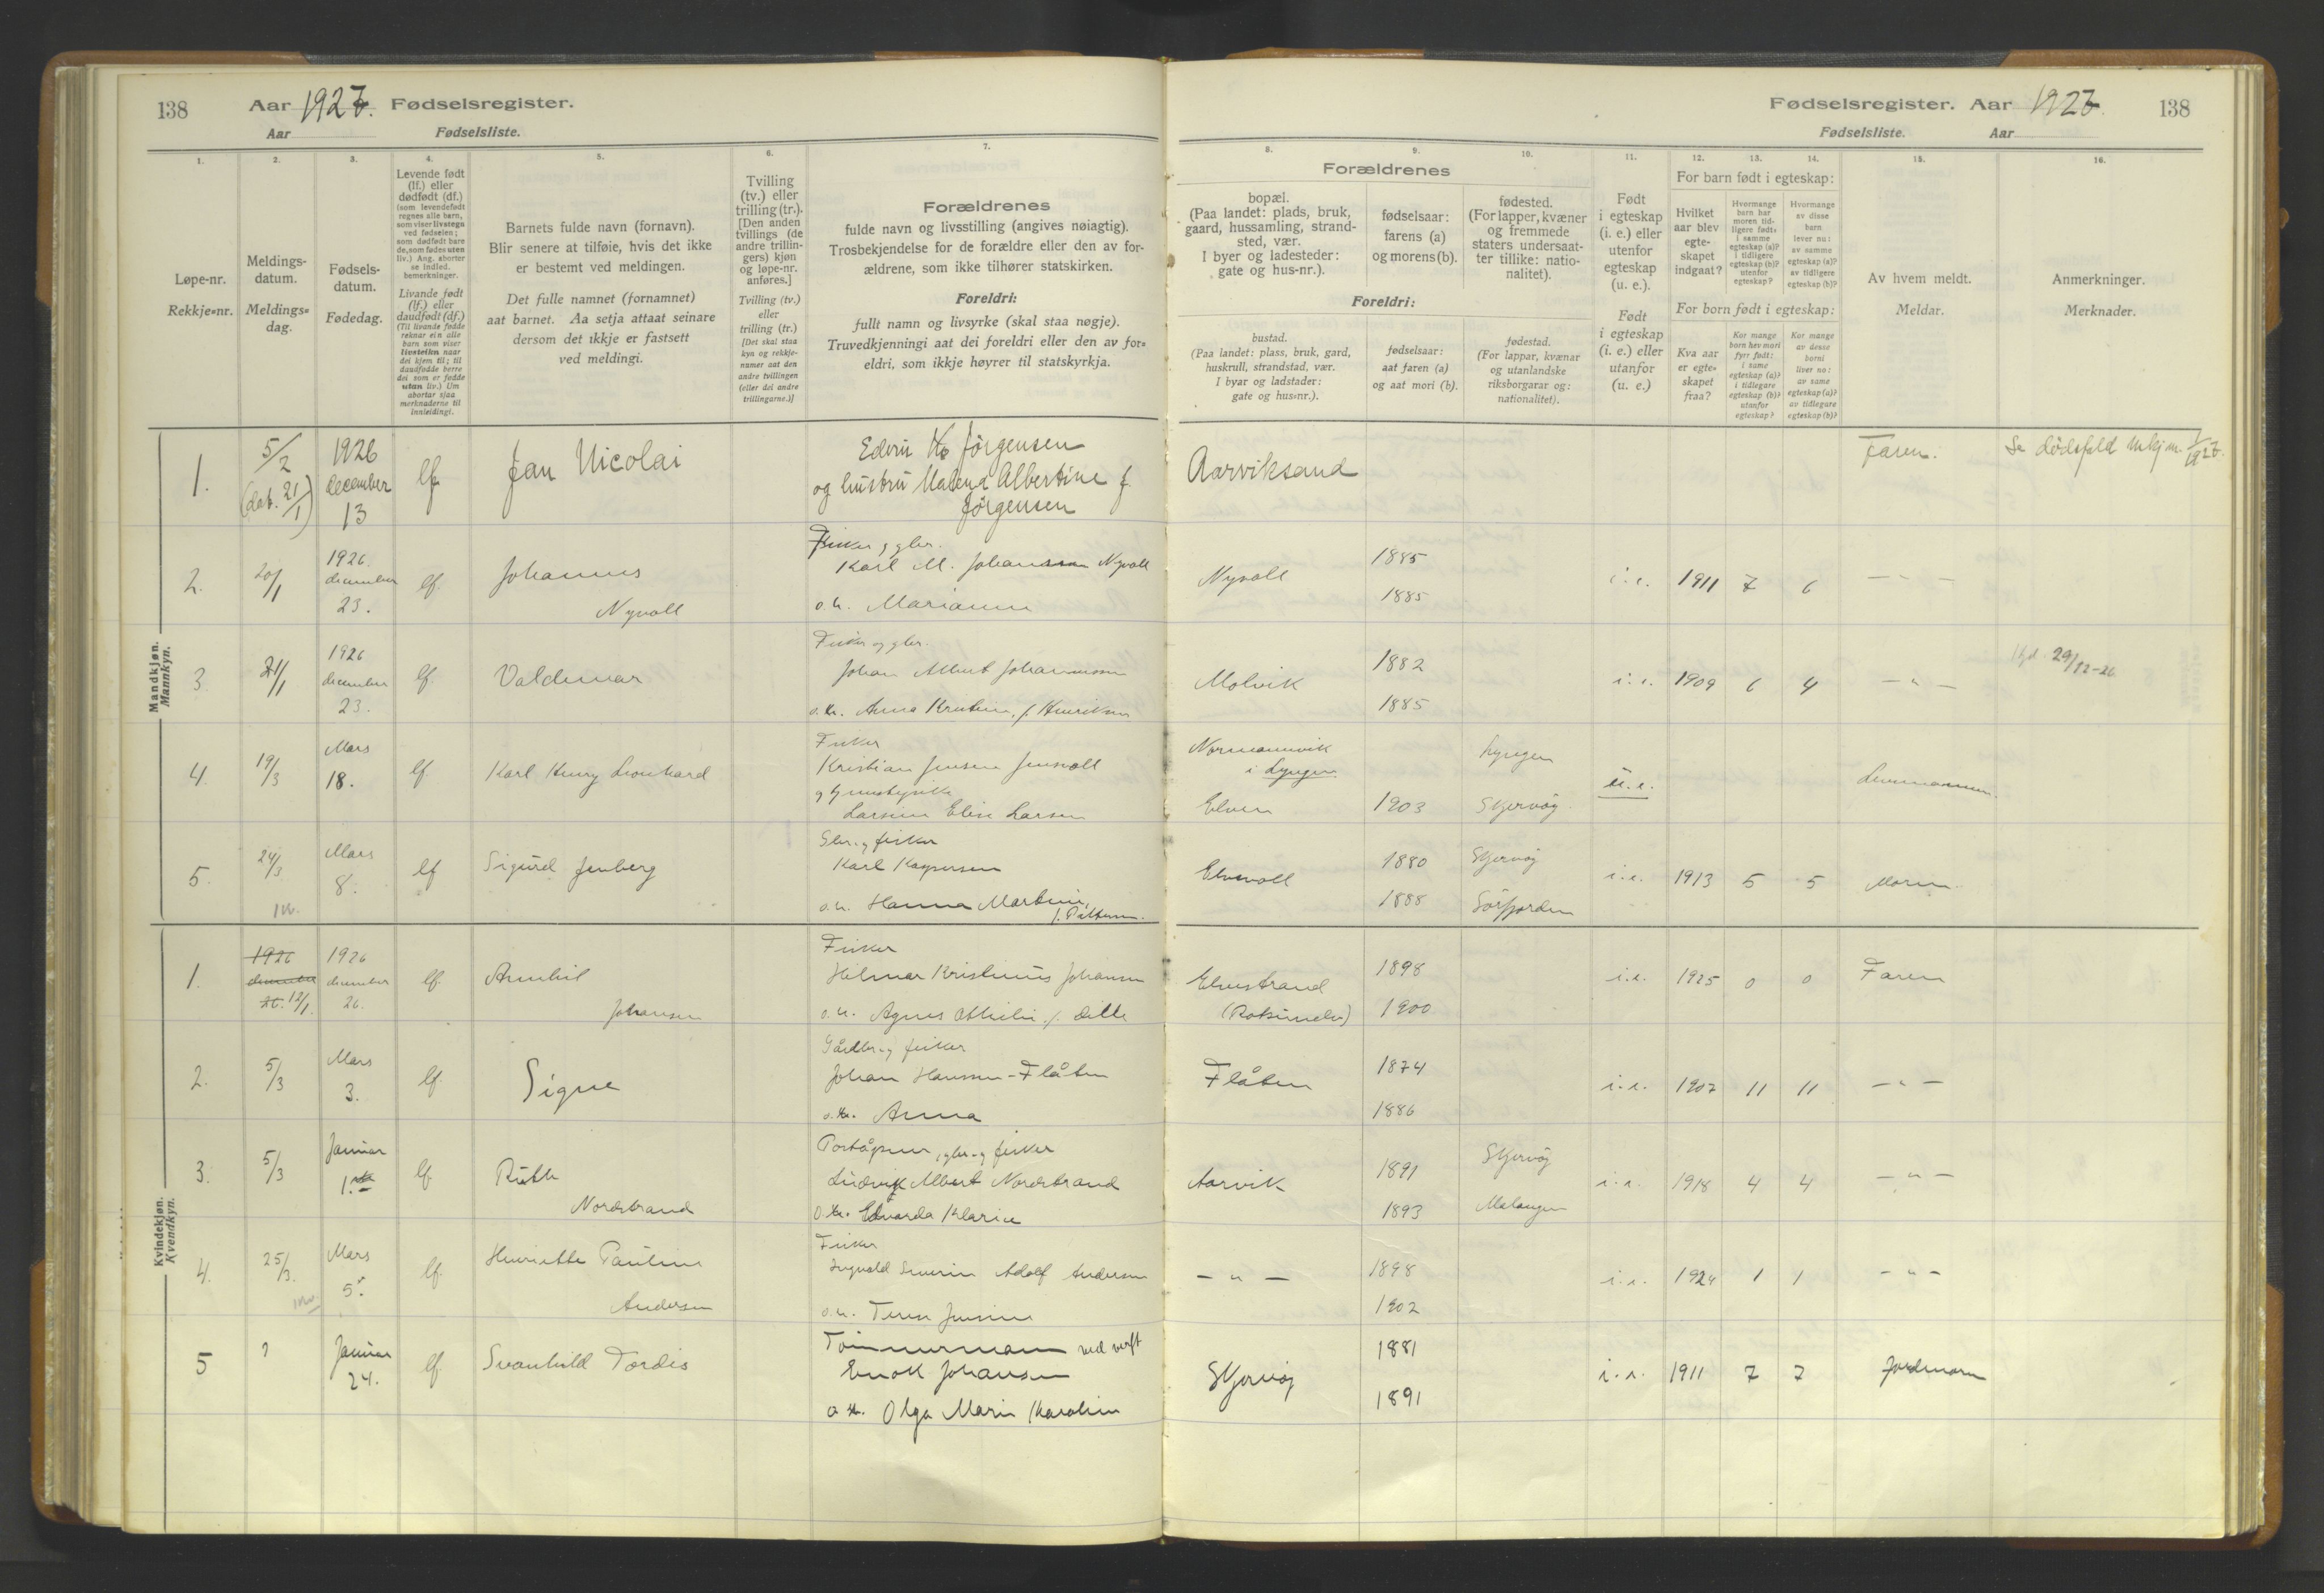 138 Aar 1927. Fødselsregister.
Aar Fødselsliste.
1. 2. 3. 4. 5. 6. 7.
Løpe-nr.
Rekkje-nr.
Meldings-
datum.
Meldings-
dag.
Fødsels-
datum.
Fødedag.
Levende født
(lf.) eller
dødfødt (df.)
(som levendefødt
regnes alle barn,
som viser livstegn
ved fødselen;
som dødfødt bare
de, som fødes uten
liv.) Ang. aborter
se indled.
bemerkninger.
Livande født
(lf.) eller
daudfødt (df.)
(Til livande fødde
reknar ein alle
barn som viser
livsteikn naar
dei kjem til; til
daudfødde berre
dei som er fødde
utan liv.) Um
abortar sjaa
merknaderne til
innleidingi.
Barnets fulde navn (fornavn).
Blir senere at tilføie, hvis det ikke
er bestemt ved meldingen.
Det fulle namnet (fornamnet)
aat barnet. Aa setja attaat seinare
dersom det ikkje er fastsett
ved meldingi.
Tvilling
(tv.) eller
trilling (tr.).
[Den anden
tvillings (de
andre trillin-
gers) kjøn
og løpe-nr.
anføres.]
Tvilling (tv.)
eller
trilling (tr.)
[Det skal staa
kyn og rekkje-
numer aat den
andre tvillingen
(eller dei andre
trillingarne.)]
Forældrenes
fulde navn og livsstilling (angives nøiagtig).
Trosbekjendelse for de forældre eller den av for-
ældrene, som ikke tilhører statskirken.
Foreldri:
fullt namn og livsyrke (skal staa nøgje).
Truvedkjenningi aat dei foreldri eller den av for-
eldri, som ikkje høyrer til statskyrkja.
Mandkjøn.
Mannkyn.
1. 5/2 (dat. 21/1) 1926 december 13 lf. Jan Nicolai
Jörgensen
og hustru Malena Albertine f.
Jörgensen
2. 20/1 1926. december 23. lf. Johannes
Nyvoll
Fisker og gbr.
Karl M. Johansen Nyvoll
o. h. Marianne
3. 21/1 1926 december 23. lf. Valdemar
Fisker og gbr.
Johan Albert Johannessen
o. h. Anna Kristine, f. Henriksen
4. 19/3 Mars 18. lf. Karl Henry Leonhard
Fisker
Kristian Jensen Jensvoll
Larsine Elise Larsen
5. 24/3 Mars 8. lf Sigurd Jenberg
Gbr. og fisker
Karl Kaspersen
o. h. Hanna Martine,
Kvindekjøn.
Kvendkyn.
1. 1926 december 26. 12/1. 1926 december 26. lf.
Johansen
Fisker
Hilmar Kristinius Johansen
o. h. Agnes f. Ditto
2. 5/3 Mars 3. lf. Signe
Gårdbr. og fisker
Johan Hansen-Flåten
o. h. Anna
3. 5/3 Januar 1. lf. Ruth
Nordstrand
Poståpner, gbr. og fisker
Ludvig Albert Nordstrand
o. h. Edvarda Klarice
4. 25/3. Mars 5. lf. Henriette Pauline
Andersen
Fisker
Ingvald Severin Adolf Andersen
o. h. Jensine
5 ? Januar 24. lf. Svanhild Tordis
Tömmermann ved verft
Enok Johansen
o. h. Olga Marie Karoline
Fødselsregister. Aar 1927. 138
Fødselsliste. Aar
8. 9. 10. 11. 12. 13. 14. 15. 16.
Forældrenes
bopæl.
(Paa landet: plads, bruk,
gaard, hussamling, strand-
sted, vær.
I byer og ladesteder:
gate og hus-nr.).
fødselsaar:
farens (a)
og morens (b).
fødested.
(For lapper, kvæner
og fremmede
staters undersaat-
ter tillike: natio-
nalitet).
Foreldri:
bustad.
(Paa landet: plass, bruk, gard,
huskrull, strandstad, vær.
I byar og ladstader:
gate og hus-nr.).
fødselsaar:
aat faren (a)
og aat mori (b).
fødestad.
(For lappar, kvænar
og utanlandske
riksborgarar og:
nationalitet).
Født
i egteskap
(i. e.) eller
utenfor
egteskap
(u. e.).
Født
i egteskap
(i. e.) eller
utanfor
(u. e.)
For barn født i egteskap:
Hvilket
aar blev
egte-
skapet
indgaat?
Hvormange
barn har
moren tid-
ligere født:
i samme
egteskap (a)?
i tidligere
egteskap (b)?
utenfor
egteskap?
Hvormange
av disse
barn
lever nu:
av samme
egteskap (a)?
av tidligere
egteskap (b)?
For born født i egteskap:
Kva aar
er egte-
skapet
fraa?
Kor mange
born hev mori
fyrr født:
i same
egteskap (a)?
i tidlegare
egteskap (b)?
utanfor
egteskap?
Kor mange
av desse
borni
liver no:
av same
egteskap (a)?
av tidlegare
egteskap (b)?
Av hvem meldt.
Meldar.
Anmerkninger.
Merknader.
Aarviksand Faren. Se dödsfald 1927.
Nyvoll 1885 1885 i. e. 1911 7 6 — " —
Molvik 1882 1885 i. e. 1909 6 4 — " — 29/12-26.
Normannvik
i Lyngen Lyngen
Elven 1903 Skjervöy u. e. Lensmannen.
Elvevoll 1880 1888 Skjervöy Sörfjorden i. e. 1913 5 5 Moren
Elvestrand
(Rotsundelv) 1898 1900 i. e. 1925 0 0 Faren
Flåten 1874 1886 i. e. 1907 11 11 — " —
Aarvik 1891 1893 Skjervöy Malangen i. e. 1918 4 4 — " —
— " — 1898 1902 i. e. 1924 1 1 — " —
Skjervöy 1881 1891 i. e. 1911 7 7 Jordmoren